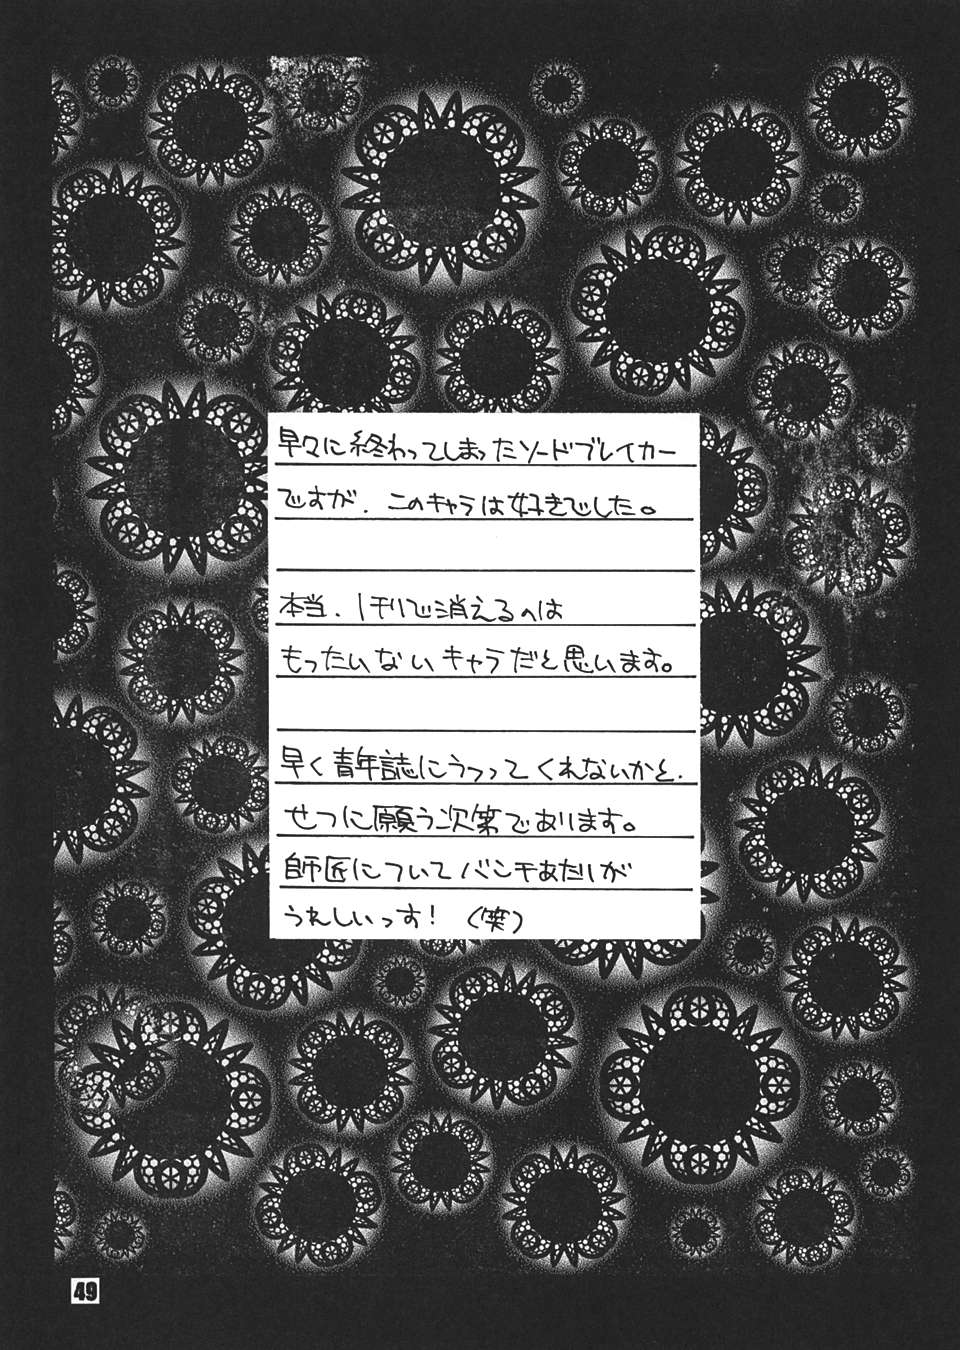 早々に終わってしまったソードブレイカー
ですが、このキャラは好きでした。
本当、1手リで消えるのは
もったいないキャラだと思います。
早く青年誌にうつってくれないかと、
せつに願う次第であります。
師匠についてバンチあたりが
うれしいっす!(笑)
49